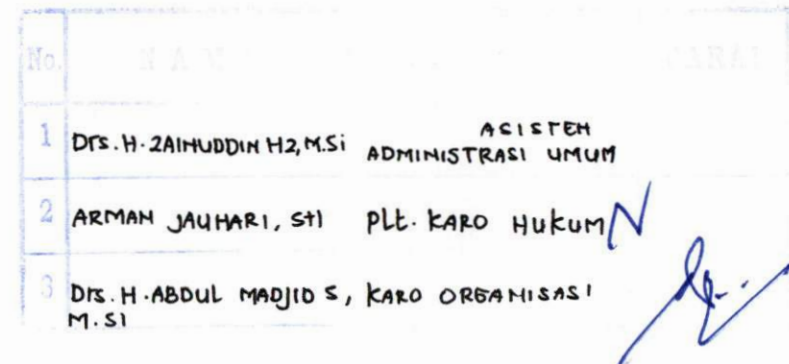 No. N A M A PARAF
1 Drs. H. ZAINUDDIN HZ, M.Si ASISTEN
ADMINISTRASI UMUM
2 ARMAN JAUHARI, SH Plt. KARO HUKUM
3 Drs. H. ABDUL MADJID S, KARO ORGANISASI
M.SI